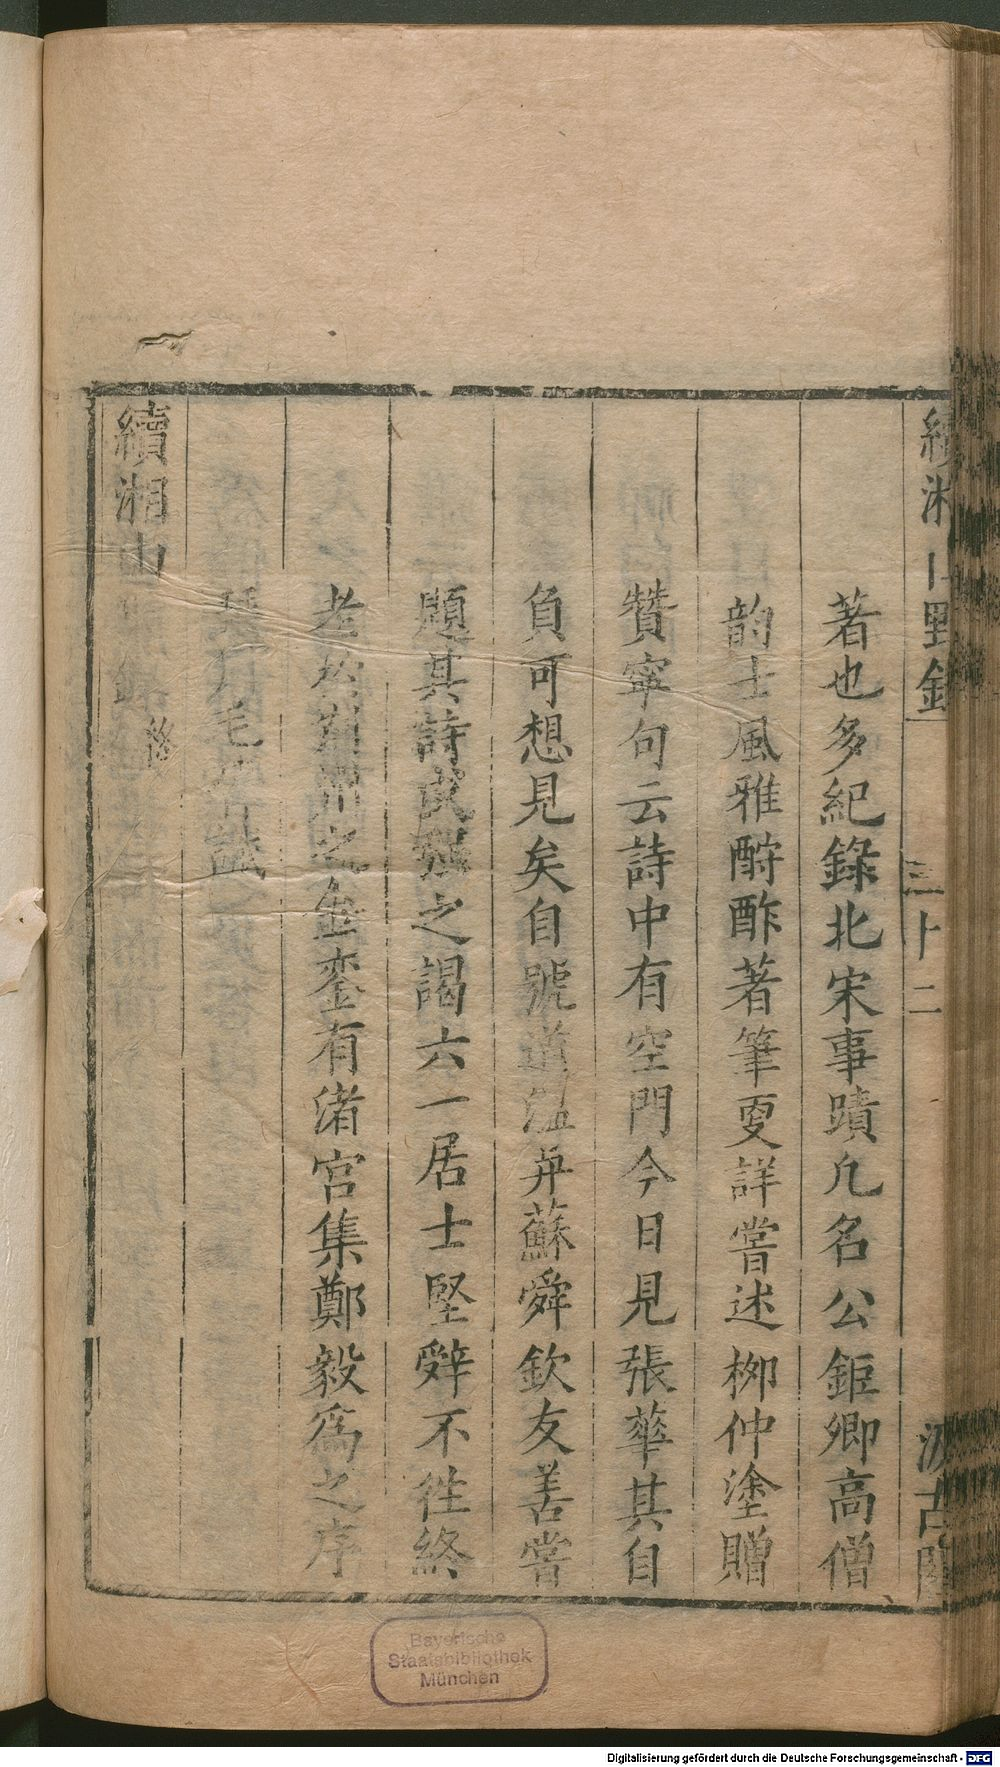 續湘山野錄
三十二
汲古閣
著也多紀錄北宋事蹟凡名公鉅卿高僧
韵士風雅酧酢著筆更詳嘗述柳仲塗贈
贊寧句云詩中有空門今日見張華其自
負可想見矣自號道温與蘇舜欽友善嘗
題其詩或强之謁六一居士堅辤不徃終
老於荆州之金鑾有渚宮集鄭毅爲之序
毛晉識
續湘山野錄終
Bayerische
Staatsbibliothek
München
Digitalisierung gefördert durch die Deutsche Forschungsgemeinschaft - DFG